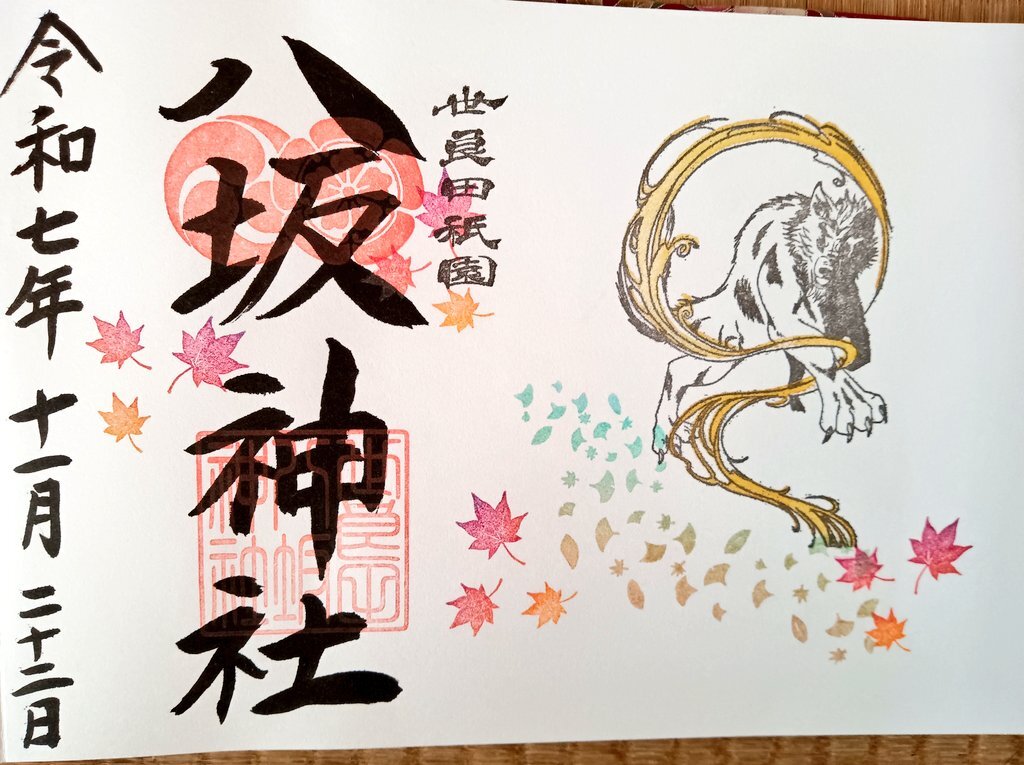 世良田祇園
八坂神社
令和七年十一月二十二日